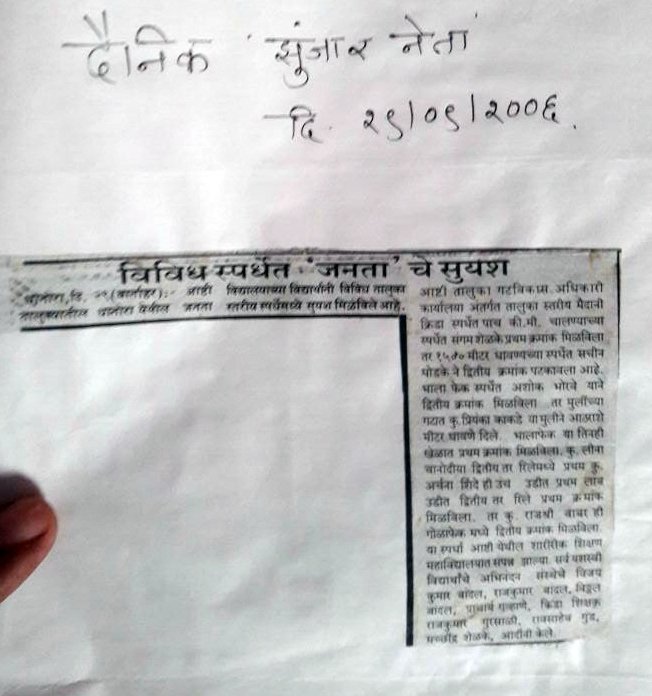 दैनिक 'झुंजार नेता'
दि. २९/०९/२००६.
विविध स्पर्धेत 'जनता' चे सुयश
दि. २९ (वार्ताहर):- आष्टी
तालुक्यातील येथील जनता
विद्यालयाच्या विद्यार्थांनी विविध तालुका
स्तरीय स्पर्धेमध्ये सुयश मिळविले आहे.
आष्टी तालुका गटविकास अधिकारी
कार्यालया अंतर्गत तालुका स्तरीय मैदानी
क्रिडा स्पर्धेत पाच की.मी. चालण्याच्या
स्पर्धेत संगम शेळके प्रथम क्रमांक मिळविला
तर १५०० मीटर धावण्याच्या स्पर्धेत सचीन
घोडके ने द्वितीय क्रमांक पटकावला आहे.
भाला फेक स्पर्धेत अशोक भोरवे याने
द्वितीय क्रमांक मिळविला तर मुलींच्या
गटात कु. प्रियंका काकडे या मुलीने आठराशे
मीटर धावणे दिले. भालाफेक या तिनही
खेळात प्रथम क्रमांक मिळविला. कु. लीना
चानोदीया द्वितीय तर रिलेमध्ये प्रथम कु.
अर्चना शिंदे ही उंच उडीत प्रथम लांब
उडीत द्वितीय तर रिले प्रथम क्रमांक
मिळविला. तर कु. राजश्री वाबर ही
गोळाफेक मध्ये द्वितीय क्रमांक मिळविला.
या स्पर्धा आष्टी येथील शारीरीक शिक्षण
महाविद्यालयात संपन्न झाल्या. सर्व यशस्वी
विद्यार्थांचे अभिनंदन संस्थेचे विजय
कुमार बांदल, राजकुमार बांदल, विठ्ठल
बांदल, प्राचार्य गव्हाणे, क्रिडा शिक्षक
राजकुमार गुरसाळी, रावसाहेब गुंड,
मच्छींद्र शेळके, आदींनी केले.